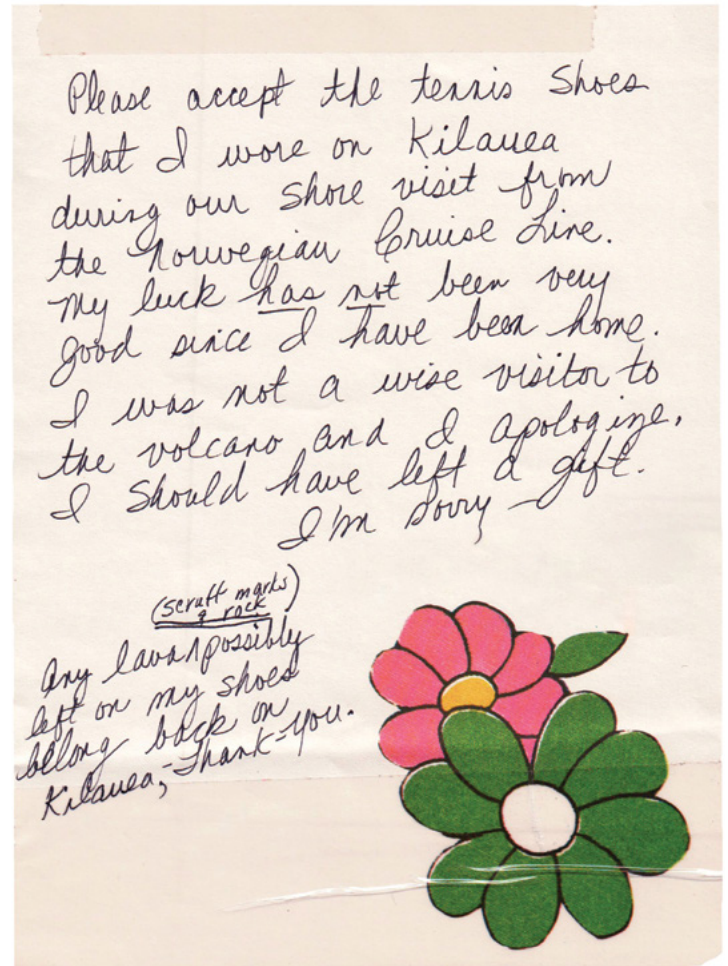 Please accept the tennis Shoes
that I wore on Kilauea
during our Shore visit from
the Norwegian Cruise Line.
My luck has not been very
good since I have been home.
I was not a wise visitor to
the volcano and I apologize.
I Should have left a gift.
I'm sorry
(scruff marks
& rock)
Any lava possibly
left on my shoes
belong back on
Kilauea, - Thank-you.